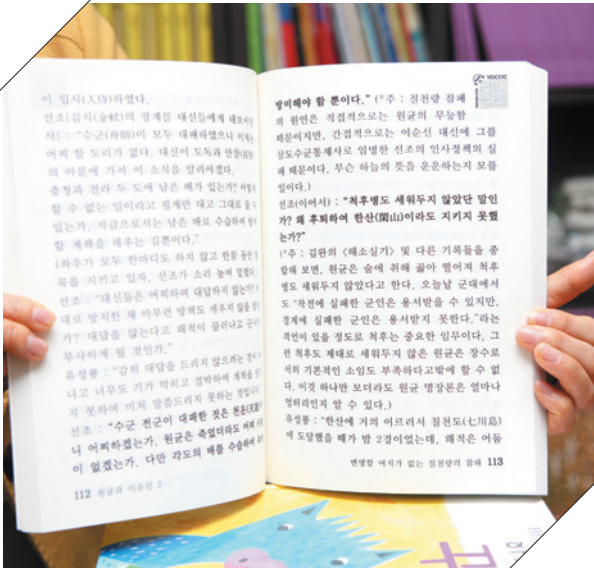 이 입시(入侍)하였다.
선조[김식(金軾)의 장계를 대신들에게 내보이면
서] : “수군(舟師)이 모두 대패하였으니 이제는
어찌 할 도리가 없다. 대신이 도독과 안찰
의 아문에 가서 이 소식을 알려야겠다.
충청과 전라 두 도에 남은 배가 있는가? 어떻게
할 수 없는 일이라고 핑계만 대고 그대로 둘 수
있는가. 지금으로서는 남은 배로 수습하여 방어
할 계책을 세우는 길뿐이다.”
(좌우가 모두 한마디도 하지 않고 한참 동안 침
묵을 지키고 있자, 선조가 소리 높여 말했다.)
선조 : “대신들은 어찌하여 대답하지 않는가? 이
대로 방치한 채 아무런 방책도 세우지 않을 것인
가? 대답을 않는다고 왜적이 물러나고 군사가
무사하게 될 것인가.”
유성룡 : “감히 대답을 드리지 않으려는 것이 아
니고 너무도 기가 막히고 절박하여 계책을 찾
지 못하여 미처 말씀드리지 못하는 것입니다.
선조 : “수군 전군이 대패한 것은 천운(天運)이
니 어찌하겠는가. 원균은 죽었더라도 어찌 사람
이 없겠는가. 다만 각도의 배를 수습하여 속히
112 원균과 이순신 2
VOICEYE
방비해야 할 뿐이다.” (*주 : 칠천량 참패
의 원인은 직접적으로는 원균의 무능함
때문이지만, 간접적으로는 이순신 대신에 그를
삼도수군통제사로 임명한 선조의 인사정책의 실
패 때문이다. 무슨 하늘의 뜻을 운운하는지 모를
일이다.)
선조(이어서) : “척후병도 세워두지 않았단 말인
가? 왜 후퇴하여 한산(閑山)이라도 지키지 못했
는가?”
(*주 : 김완의 《해소실기》 및 다른 기록들을 종
합해 보면, 원균은 술에 취해 곯아 떨어져 척후
병도 세워두지 않았다고 한다. 오늘날 군대에서
도 “작전에 실패한 군인은 용서받을 수 있지만,
경계에 실패한 군인은 용서받지 못한다.”라는
격언이 있을 정도로 척후는 중요한 임무이다. 그
런 척후도 제대로 세워두지 않은 원균은 장수로
서의 기본적인 소임도 부족하다고밖에 할 수 없
다. 이것 하나만 보더라도 원균 명장론은 얼마나
엉터리인지 알 수 있다.)
유성룡 : “한산에 거의 이르러서 칠천도(七川島)
에 도달했을 때가 밤 2경이었는데, 왜적은 어둠
변명할 여지가 없는 칠천량의 참패 113